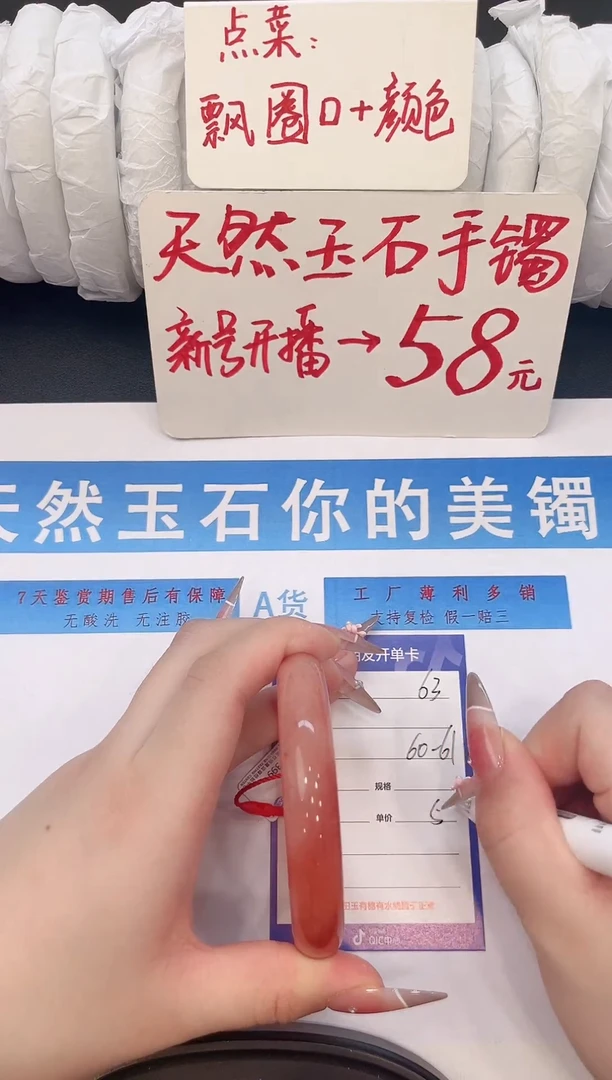 点菜:
飘圈口+颜色
天然玉石手镯
新号开播→58元
天然玉石你的美镯
7天鉴赏期售后有保障
无酸洗 无注胶
A货
工厂薄利多销
支持复检 假一赔三
开单卡
63
60-61
规格
单价 5